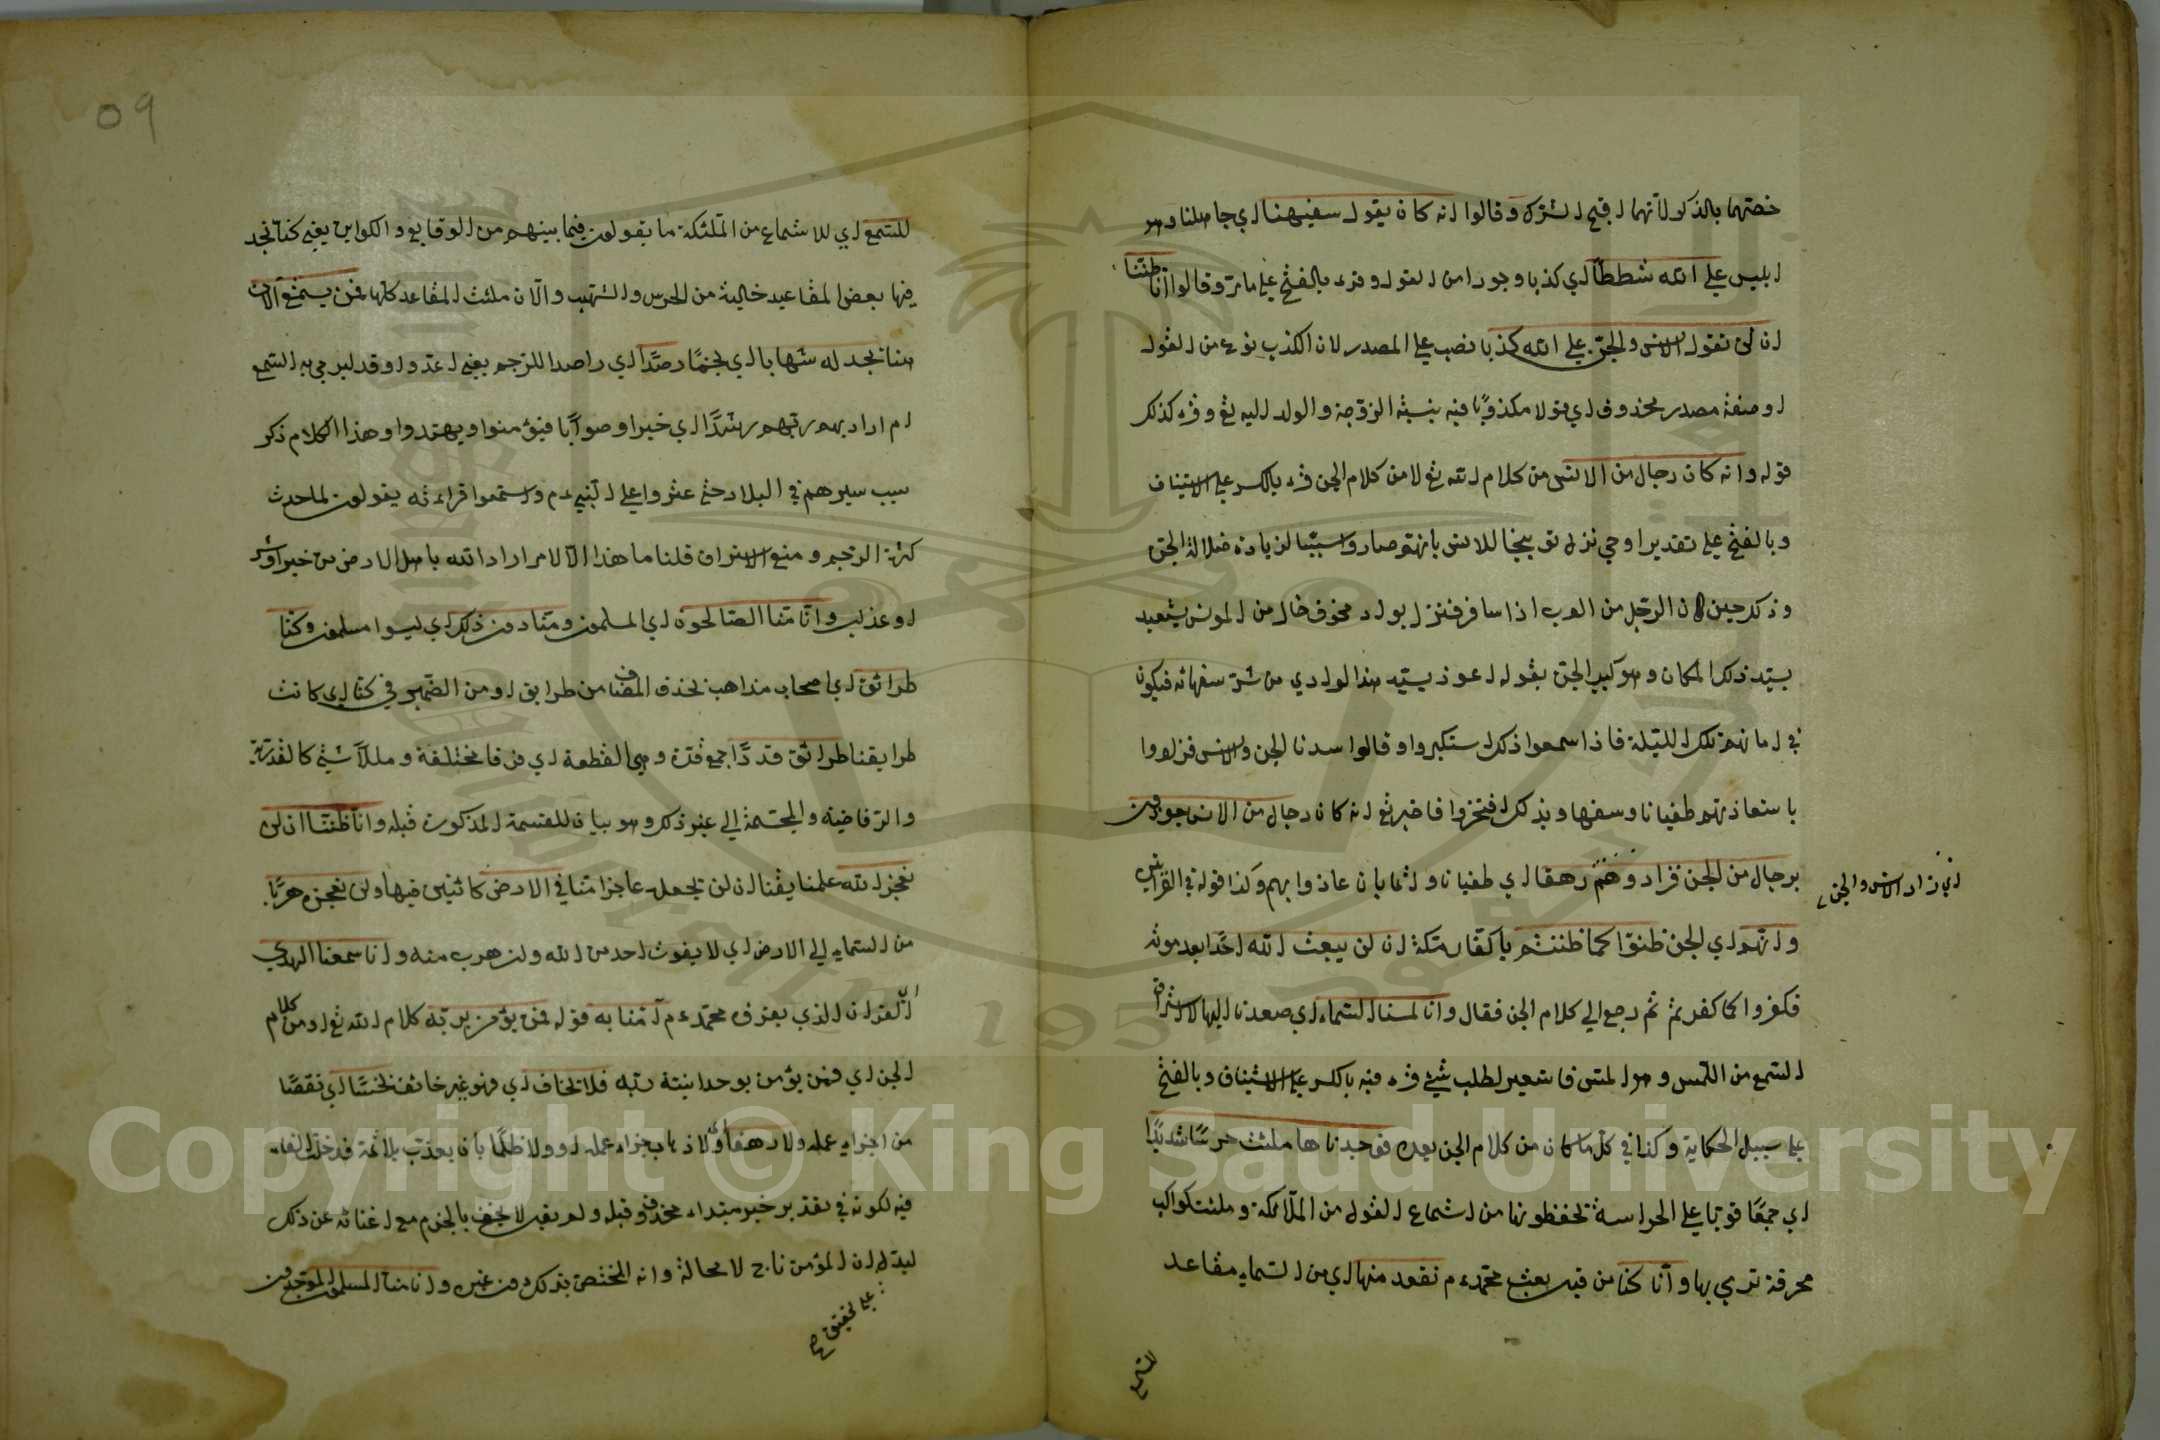 خصتهما بالذكر لأنهما اقبح الشرك وقالوا انه كان يقول سفيهنا اي جاهلنا وهو
ابليس علي الله شططا اي كذبا وجورا من القول وقرء بالفتح علي ما مر وقالوا انا ظننا
ان لن تقول الانس والجن علي الله كذبا نصب علي المصدر لان الكذب نوع من القول
او صفة مصدر محذوف اي قولا مكذوبا فيه بنسبة الزوجة والولد اليه تع وقرء كذلك
قوله وانه كان رجال من الانس من كلام الله تع لا من كلام الجن قرء بالكسر علي الاستيناف
وبالفتح علي تقدير اوحي نزل توبيخا للانس بانهم صاروا سببا لزيادة ضلالة الجن
وذلك حين كان الرجل من العرب اذا سافر فنزل بواد مخوف خال من المونس يتعيد
بسيد ذلك المكان وهو كبير الجن بقوله اعوذ بسيد هذا الوادي من شر سفهائه فيكون
في امانهم تلك الليلة فاذا سمعوا ذلك استكبروا وقالوا سدنا الجن والانس فزادوا
باستعاذتهم طغيانا وسفها وبذلك افتخروا فاخبر تع انه كان رجال من الانس يعوذون
برجال من الجن فزادوهم رهقا اي طغيانا واثما بان عاذوا بهم وكذا قوله في القرائتين
اي زاد الانس والجن
وانهم اي الجن ظنوا كما ظننتم يا كفار مكة ان لن يبعث الله احدا بعد موته
فكفروا كما كفرتم ثم رجع الي كلام الجن فقال وانا لمسنا السماء اي صعدنا اليها لاستراق
السمع من اللمس وهو المس فاستعير لطلب شيئ قرء فيه بالكسر علي الاستيناف وبالفتح
علي سبيل الحكاية وكذا في كل ما كان من كلام الجن بعده فوجدناها ملئت حرسا شديدا
اي جمعا قويا علي الحراسة تحفظونها من استماع القول من الملائكة وملئت كواكب
محرقة ترمي بها وانا كنا من قبل بعث محمد م نقعد منها اي من السماء مقاعد
للسمع
٥٩
للسمع اي للاستماع من الملئكة ما يقولون فيما بينهم من الوقايع والكواين يعني كنا نجد
فيها بعض المقاعد خالية من الحرس والشهب والآن ملئت المقاعد كلها فمن يستمع الآن
منا نجد له شهابا اي نجما رصدا اي راصدا للرجم يعني اعد واوقد ليرمي به السمع
ام اراد بهم ربهم رشدا اي خيرا وصوابا فيؤمنوا ويهتدوا وهذا الكلام ذكر
سبب سيرهم في البلاد حتي عثروا علي النبي م واستمعوا قراءته يقولون لما حدث
كثرة الرجم ومنع الاستراق قلنا ما هذا الا لامر اراد الله باهل الارض من خير او شر
او عذاب وانا منا الصالحون اي المسلمون ومنا دون ذلك اي ليسوا مسلمون وكنا
طرائق اي اصحاب مذاهب بحذف المضاف من طرايق او من الضمير في كنا اي كانت
طرايقنا طرائق قددا جمع قدة وهي القطعة اي فرقا مختلفة ومللا شتي كالقدرية
والرفاضية والمجسمة الي غير ذلك وهو بيان للقسمة المذكورة قبله وانا ظننا ان لن
نعجز الله علمنا يقنا ان لن نجعل عاجزا منا في الارض كائنين فيها ولن نعجزه هربا
من السماء الي الارض اي لا يفوت احد من الله ولن هرب منه وانا سمعنا الهدي
القرآن الذي يقرؤه محمد م آمنا به قوله فمن يؤمن بربه كلام الله تع او من كلام
الجن اي فمن يؤمن بوحدانية ربه فلا يخاف اي فهو غير خائف بخسا اي نقصا
من اجزاء عمله ولا رهقا ولا ذهاب جزاء عمله او ولا ظلما بان يعذب بلا ثمة قد دخل الفاء
فيه لكونه في تقدير خبر مبتداء محذوف قبله ولم يقل لا يخف بالجزم مع اغنائه عن ذلك
ليدل ان المؤمن ناج لا محالة وانه المختص بذلك دون غيره وانا منا المسلمون الموحدون
علي تحقيق صح
Copyright © King Saud University
1957